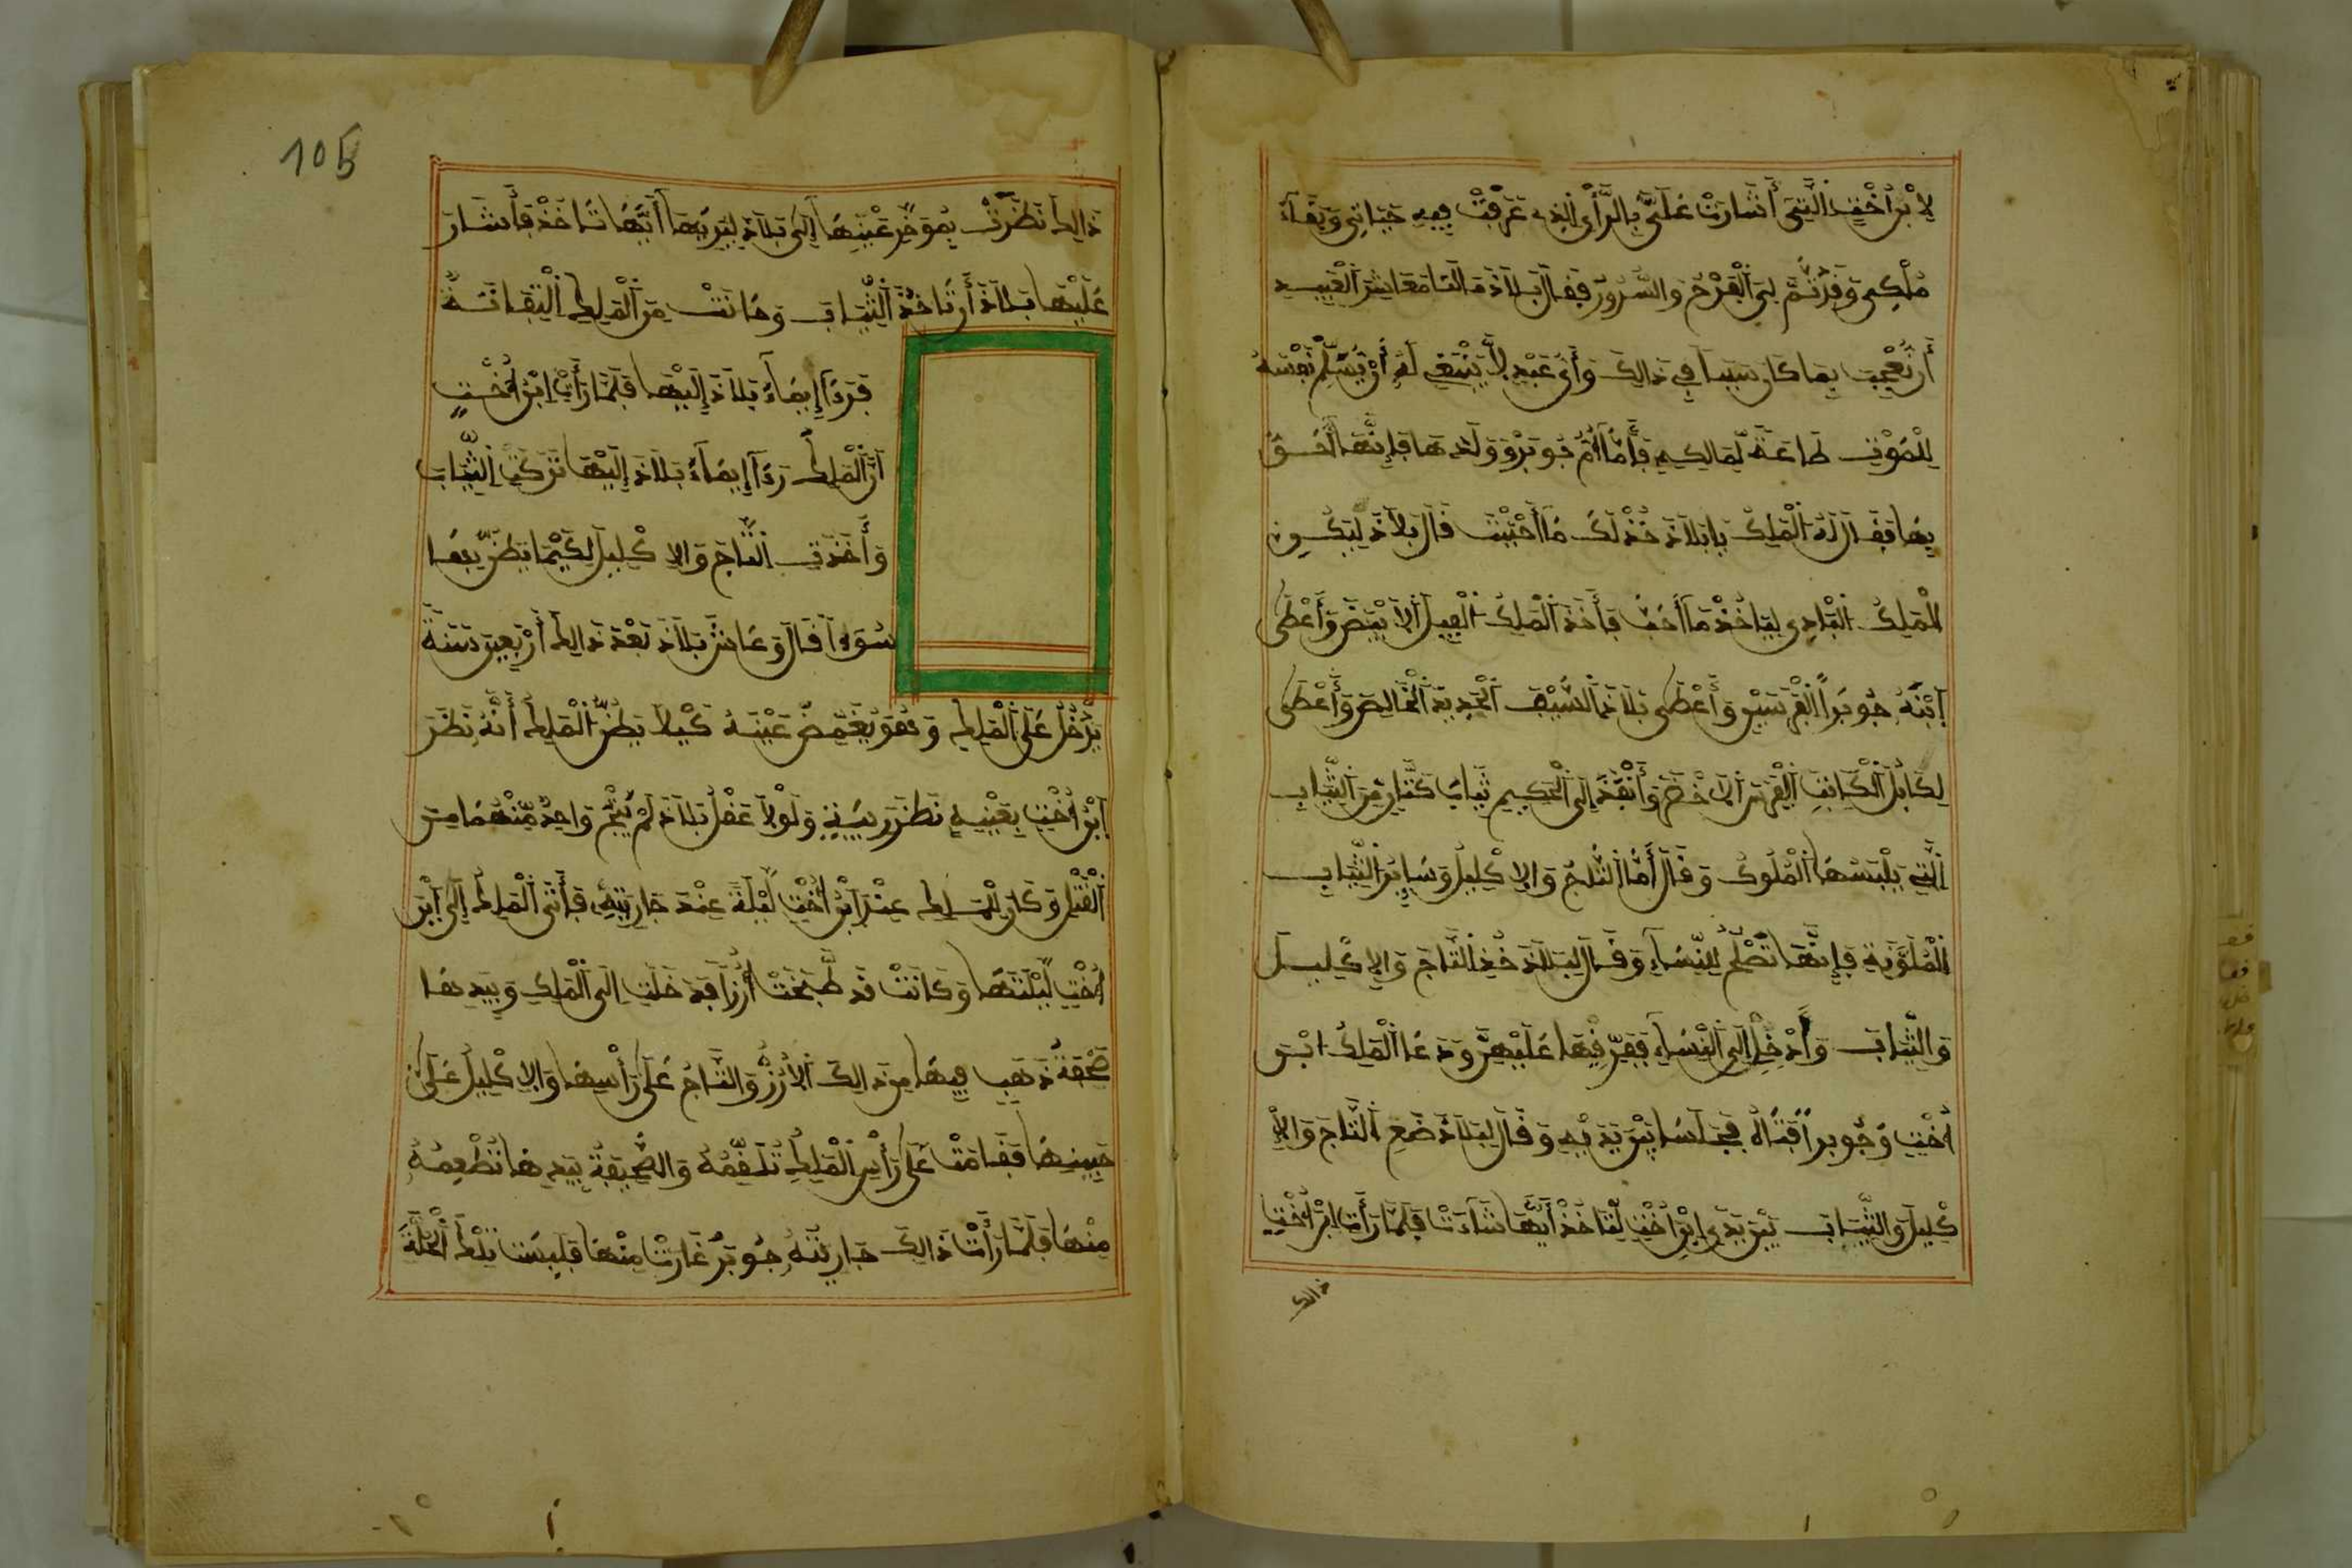 لِابْرَأُخْتِ الَّتِي أَشَارَتْ عَلَيَّ بِالرَّأْيِ الذِي عَرَفْتُ فِيهِ حَيَاتِي وَبَقَاءَ
مُلْكِي وَقَدْ تَمَّ لِيَ الْفَرَحُ وَالسُّرُورُ فَقَالَ بَلَاذُ مَا لَنَا مَعَاشِرَ الْعَبِيدِ
أَن نُعْجِبَ بِمَا كَانَ مِنَّا فِي ذَالِكَ وَأَيُّ عَبْدٍ لَا يَنْبَغِي لَهُ أَنْ يُسَلِّمَ نَفْسَهُ
لِلْمَوْتِ طَاعَةً لِّمَالِكِهِ فَأَمَّا أُمُّ جُوبَرَ وَوَلَدُهَا فَإِنَّهَا أَحَقُّ
بِهَا فَقَالَ لَهُ الْمَلِكُ يَا بَلَاذُ خُذْ لَكَ مَا أَحْبَبْتَ قَالَ بَلَاذُ لِيَكُونِ
الْمَلِكُ الْبَادِي لِيَاخُذْ مَا أَحَبَّ فَأَخَذَ الْمَلِكُ الْفِيلَ الْأَبْيَضَ وَأَعْطَى
اَبْنَهُ جُوبَرَاً الْفَرَسَيْنِ وَأَعْطَى بَلَاذَ السَّيْفَ الْحَدِيدَ الْخَالِصَ وَأَعْطَى
لِكَابُلَ الْكَاتِبِ الْفَرَسَ الْأَخْضَرَ وَأَنْفَذَ إِلَى الْحَكِيمِ ثِيَابَ كَتَّانٍ مِنَ الثِّيَابِ
الَّتِي يَلْبَسُهَا الْمُلُوكُ وَقَالَ أَمَّا التَّاجُ وَالِاكْلِيلُ وَسَايِرُ الثِّيَابِ
الْمُلَوَّنَةِ فَإِنَّهَا تَصْلُحُ لِلنِّسَاءِ وَقَالَ لِبَلَاذَ خُذِ التَّاجَ وَالِاكْلِيلَ
وَالثِّيَابَ وَأَدْخِلْ إِلَى النِّسَاءِ فَفَرِّقِهَا عَلَيْهِنَّ وَدَعَا الْمَلِكُ ابْرَ
أُخْتِ وَجُوبَرَ أُمَّ ... فَجَلَسَا بَيْنَ يَدَيْهِ وَقَالَ لِبَلَاذَ ضَعِ التَّاجَ وَالْاِ
كْلِيلَ وَالثِّيَابَ بَيْنَ يَدَيِ ابْرَأُخْتِ لِتَاخُذْ أَيَّهَا شَاءَتْ فَلَمَّا رَأَتْ ابْرَأُخْتِ
ذالك
105
ذَالِكَ نَظَرَتْ بِمُؤَخَّرِ عَيْنِهَا إِلَى بَلَاذَ لِيُرِيَهَا أَيَّهَا تَاخُذْ فَأَشَارَ
عَلَيْهَا بَلَاذُ أَن تَاخُذَ الثِّيَابَ وَكَانَتْ مِنَ الْمَلِكِ الْتِفَاتَةٌ
فَرَءَآ إِيمَاءَ بَلَاذَ إِلَيْهَا فَلَمَّا رَأَتْ ابْرَأُخْتِ
أَنَّ الْمَلِكَ رَءَآ إِيمَاءَ بَلَاذَ إِلَيْهَا تَرَكَتِ الثِّيَابَ
وَأَخَذَتِ التَّاجَ وَالِاكْلِيلَ لِكَيْمَا يَظُنَّ بِهَا
سُوءاً قَالَ وَعَاشَ بَلَاذُ بَعْدَ ذَالِكَ أَرْبَعِينَ سَنَةً
يَدْخُلُ عَلَى الْمَلِكِ وَهُوَ يُغَمِّضُ عَيْنَهُ كَيْلَا يَظُنَّ الْمَلِكُ أَنَّهُ نَظَرَ
اَبْرَأُخْتِ بِعَيْنِهِ نَظَرَ رِيبَةٍ وَلَوْلَا عَقْلُ بَلَاذَ لَمْ يَنْجُ وَاحِدٌ مِّنْهُمَا مِنَ
الْقَتْلِ وَكَانَ لِلْمَلِكِ عِنْدَ اَبْرَأُخْتِ لَيْلَةٌ عِنْدَ جَارِيَتِهِ فَأَتَى الْمَلِكُ إِلَى اَبْرَ
أُخْتِ لَيْلَتَهَا وَكَانَتْ قَد طَّبَخَتْ أُرُزّاً فَدَخَلَتِ الَى الْمَلِكِ وَبِيَدِهَا
صَحْفَةُ ذَهَبٍ فِيهَا مِن ذَالِكَ الْأُرُزِّ وَالتَّاجُ عَلَى رَأْسِهَا وَالِاكْلِيلُ عَلَى
جَبِينِهَا فَقَامَتْ عَلَى رَأْسِ الْمَلِكِ تُلَقِّمُهُ وَالصَّحِيفَةُ بِيَدِهَا تُطْعِمُهُ
مِنْهَا فَلَمَّا رَأَتْ ذَالِكَ جَارِيَتُهُ جُوبَرُ غَارَتْ مِنْهَا فَلَبِسَتْ تِلْكَ الْحُلَّةَ